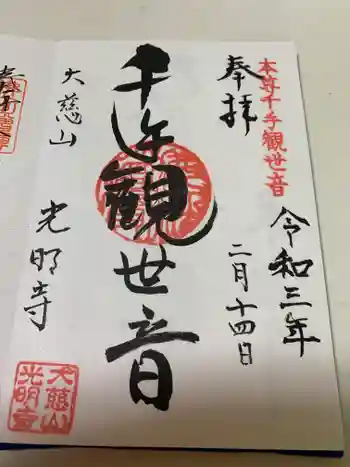 本尊千手観世音
奉拝
令和三年
二月十四日
千手観世音
大慈山
光明寺
大慈山
光明寺